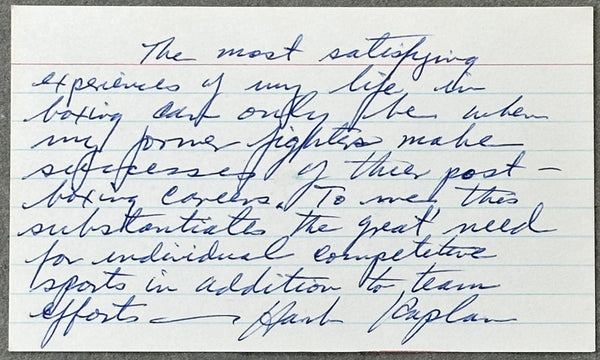 The most satisfying
experiences of my life in
boxing can only be when
my former fighters make
successes of thier post-
boxing careers. To me this
substantiates the great need
for individual competitive
sports in addition to team
efforts — Hank Kaplan